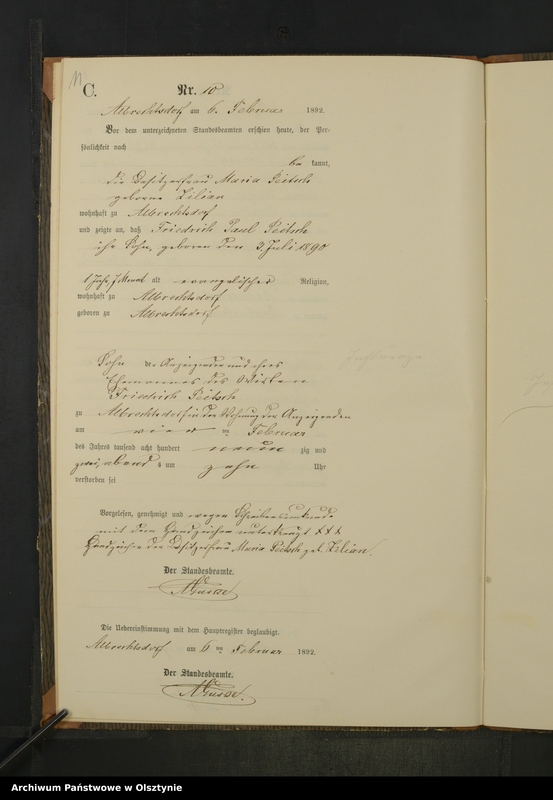 11
C. Nr. 10
Albrechtsdorf am 6. Februar 1892.
Vor dem unterzeichneten Standesbeamten erschien heute, der Per-
sönlichkeit nach
be kannt,
die Besitzerfrau Maria Peitsch
geborene Zilian
wohnhaft zu Albrechtsdorf
und zeigte an, daß Friedrich Paul Peitsch
ihr Sohn, geboren den 3. Juli 1890
1 Jahr, 7 Monat alt evangelischer Religion,
wohnhaft zu Albrechtsdorf
geboren zu Albrechtsdorf
Sohn der Anzeigenden und ihres
Ehemannes des
Friedrich Peitsch
zu Albrechtsdorf in der Wohnung der Anzeigenden
am vier ten Februar
des Jahres tausend acht hundert neun zig und
zwei, abend s um zehn Uhr
verstorben sei
Vorgelesen, genehmigt und wegen Schreibensunkunde
mit dem Handzeichen unterkreuzt XXX
Handzeichen der Besitzerfrau Maria Peitsch geb. Zilian.
Der Standesbeamte.
Die Uebereinstimmung mit dem Hauptregister beglaubigt.
Albrechtsdorf am 6 ten Februar 1892.
Der Standesbeamte.
Archiwum Państwowe w Olsztynie